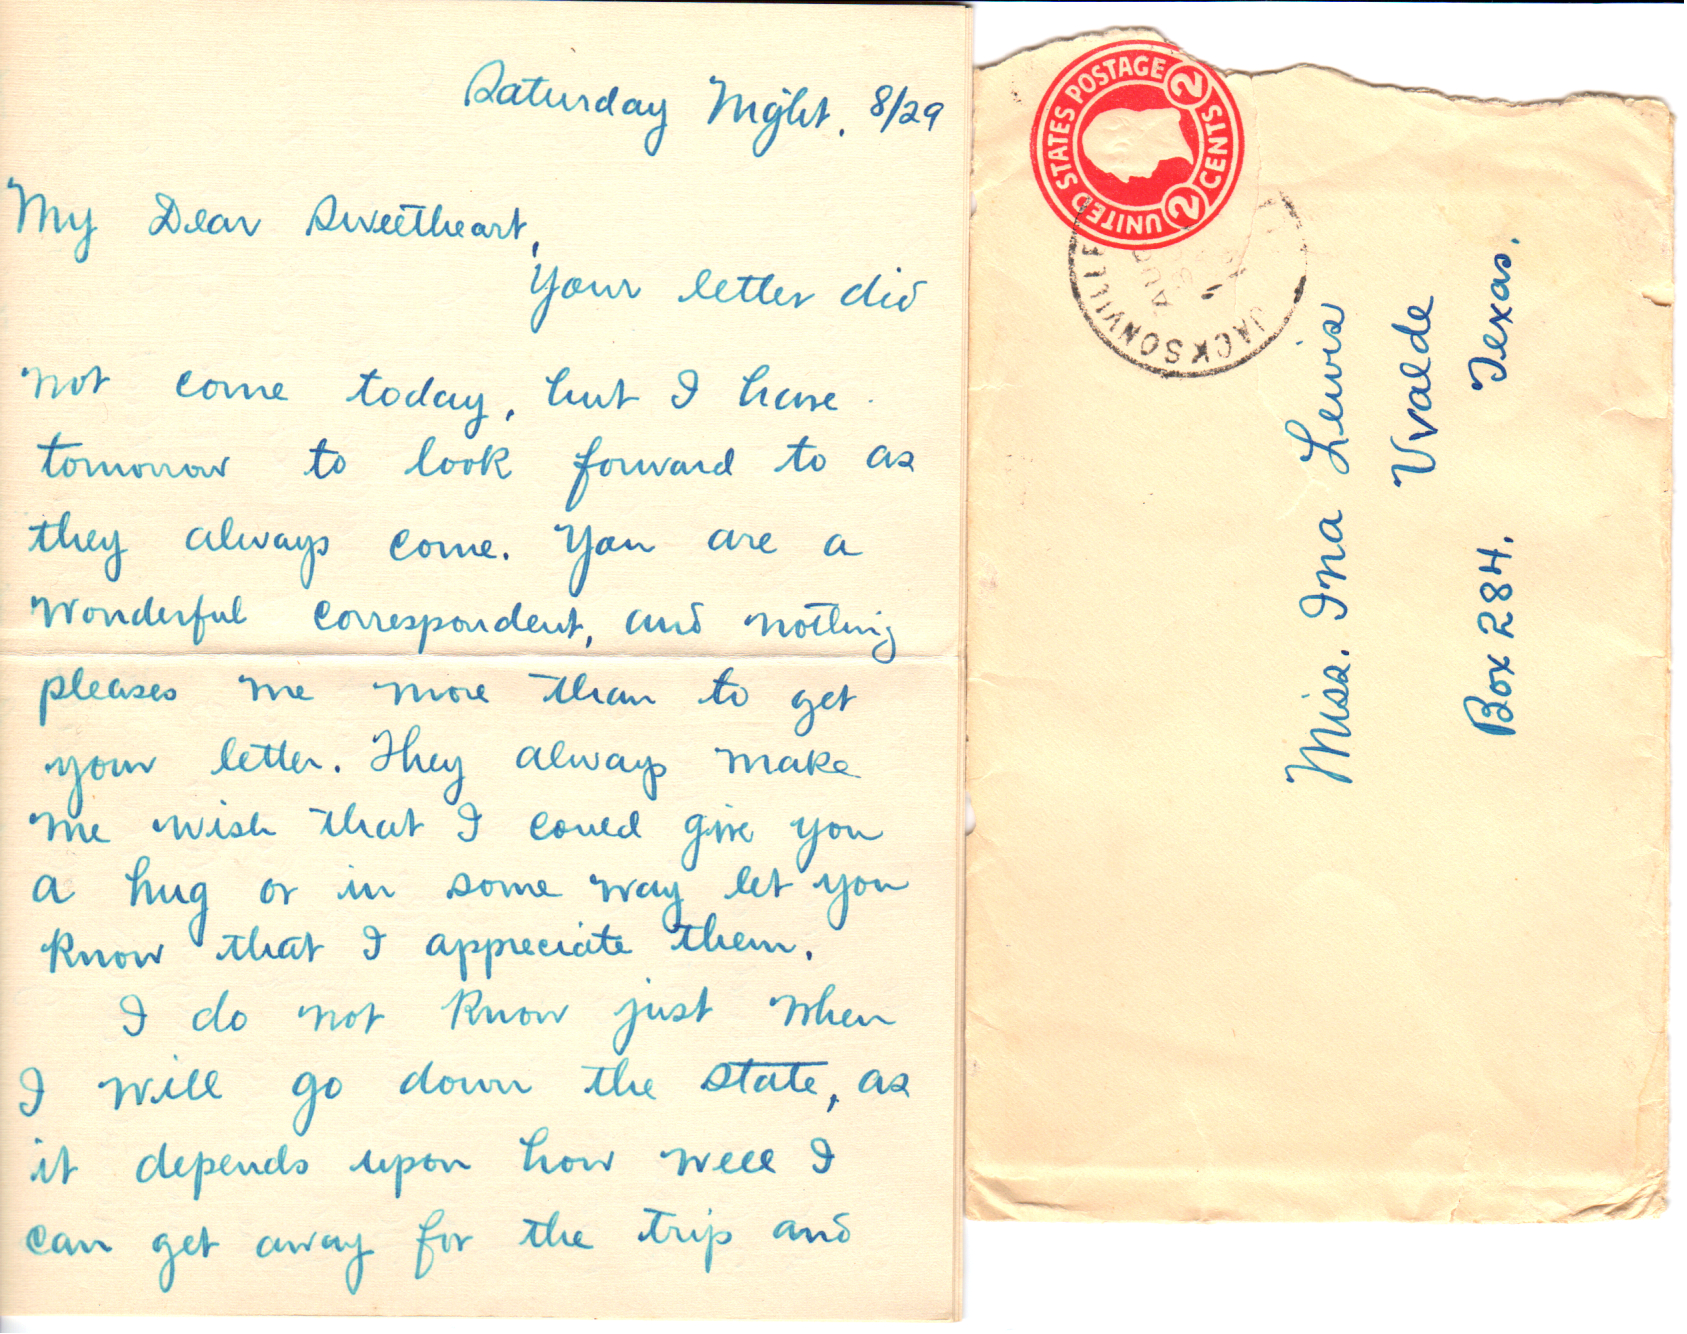 Saturday Night. 8/29
My Dear Sweetheart,
Your letter did
not come today, but I have
tomorrow to look forward to as
they always come. You are a
wonderful correspondent, and nothing
pleases me more than to get
your letter. They always make
me wish that I could give you
a hug or in some way let you
know that I appreciate them.
I do not know just when
I will go down the state, as
it depends upon how well I
can get away for the trip and
UNITED STATES POSTAGE
2 CENTS 2
JACKSONVILLE
AUG
Miss. Ina Lewis
Uvalde
Box 284. Texas.